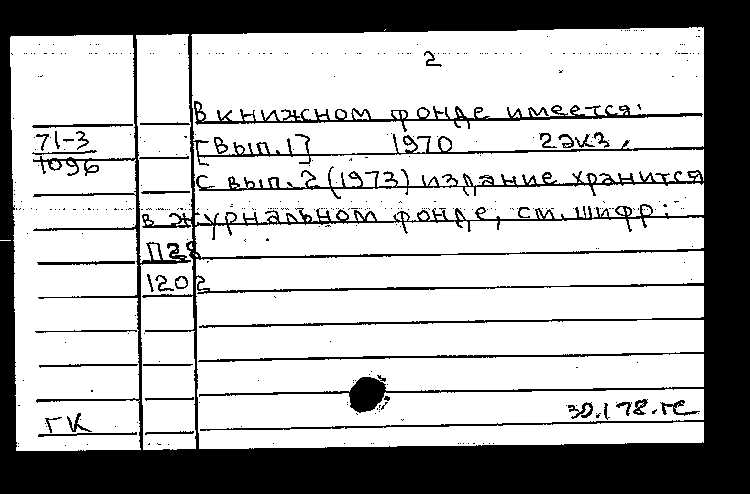 2
В книжном фонде имеется:
71-3
1096
[Вып.1] 1970 2экз.
с вып.2 (1973) издание хранится
в журнальном фонде, см. шифр:
П28
1202
ГК
30.178.ГС